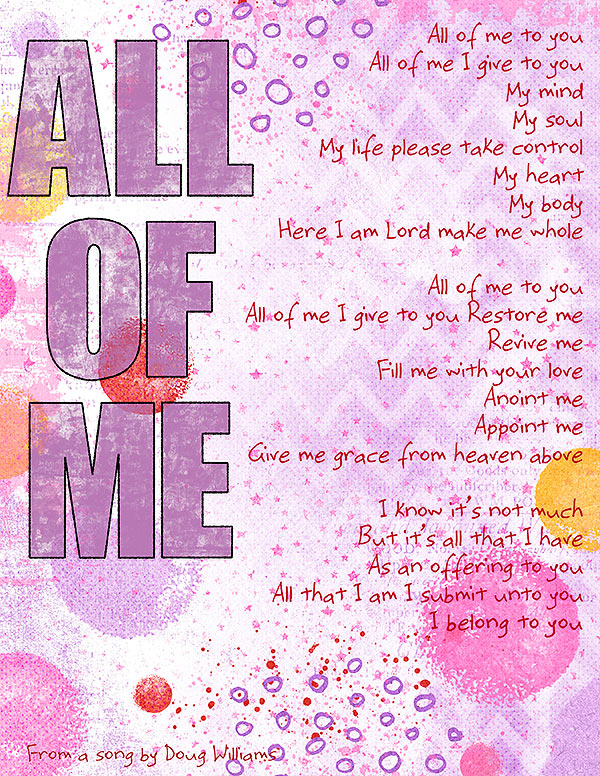 ALL
OF
ME
All of me to you
All of me I give to you
My mind
My soul
My life please take control
My heart
My body
Here I am Lord make me whole
All of me to you
All of me I give to you Restore me
Revive me
Fill me with your love
Anoint me
Appoint me
Give me grace from heaven above
I know it's not much
But it's all that I have
As an offering to you
All that I am I submit unto you
I belong to you
From a song by Doug Williams